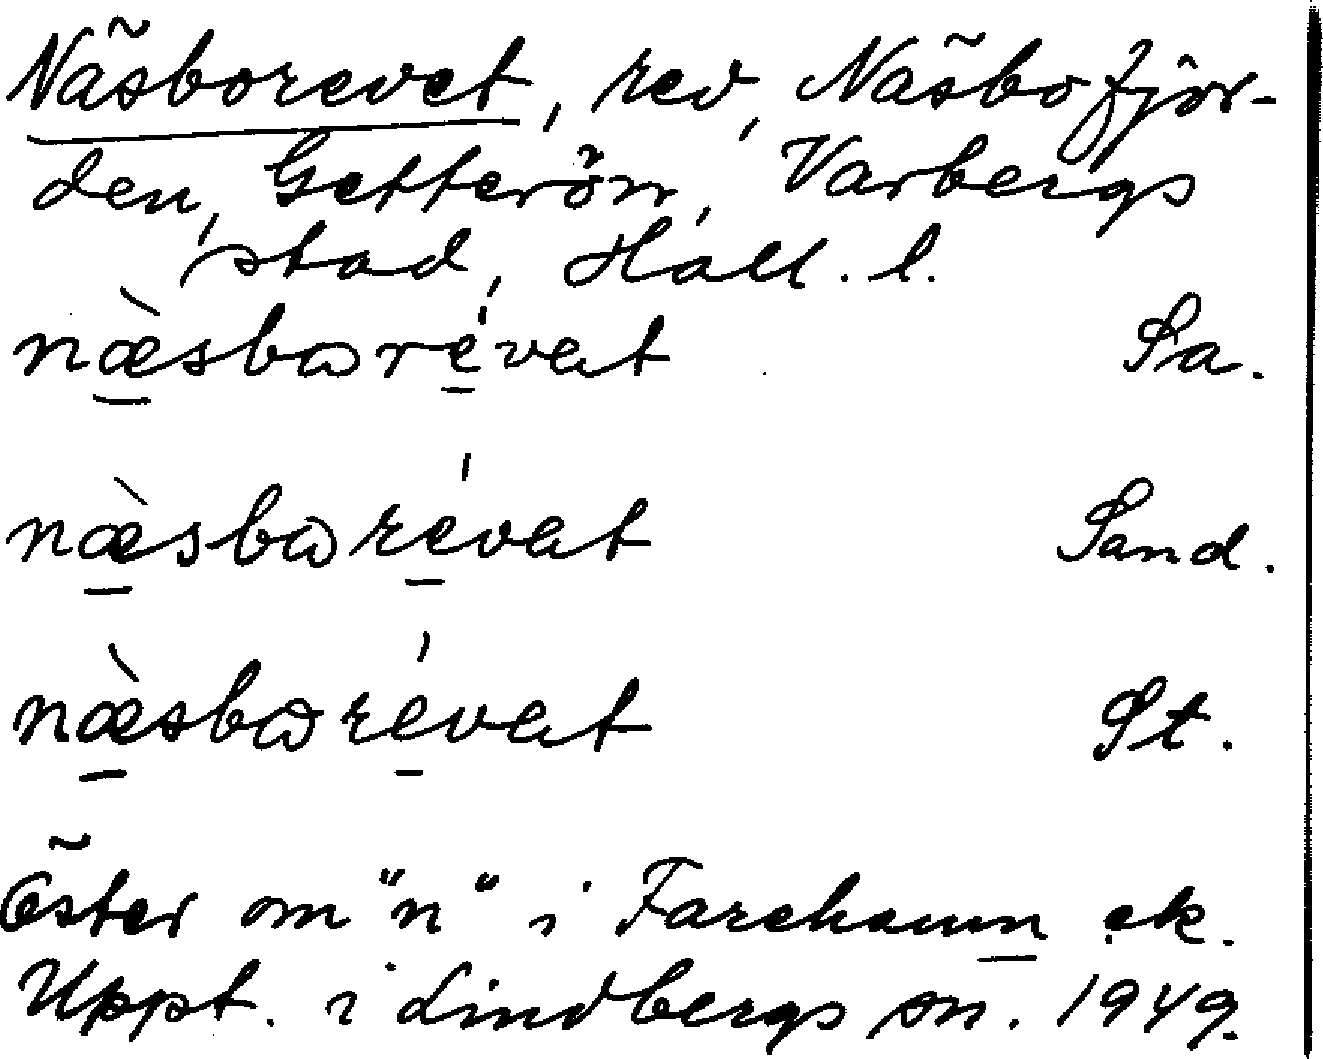 Näsborevet, rev, Näsbofjor-
den, Getterön, Varbergs
stad, Hall. l.
næ̀sbɷrévat Sa.
næ̀sbɷrévat Sand.
næ̀sbɷrévat St.
Öster om "n" i Farehamn ek.
Uppt. i Lindbergs sn. 1949.